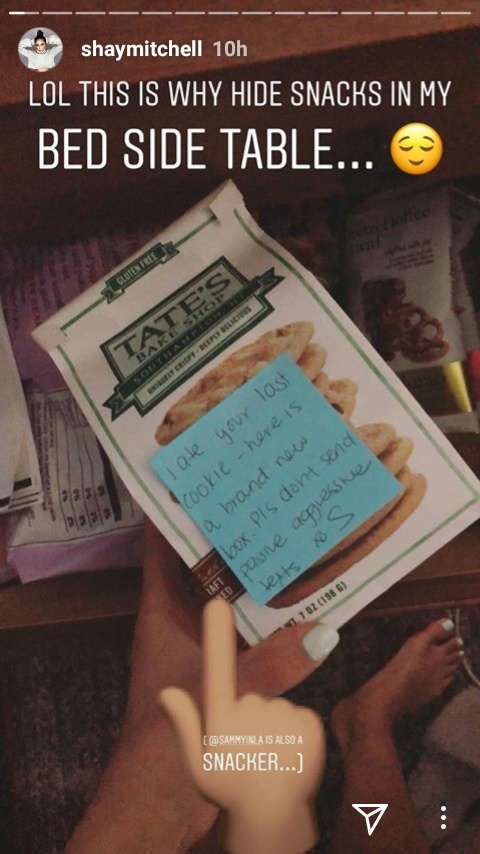 shaymitchell 10h
LOL THIS IS WHY HIDE SNACKS IN MY
BED SIDE TABLE...
GLUTEN FREE
TATE'S
BAKE SHOP
SOUTHAMPTON, NY
UNIQUELY CRISPY - DEEPLY DELICIOUS
I ate your last
cookie - here is
a brand new
box. Pls dont send
passive aggressive
texts xo S
WT. 7 OZ (198 G)
( @SAMMYINLA IS ALSO A
SNACKER...)